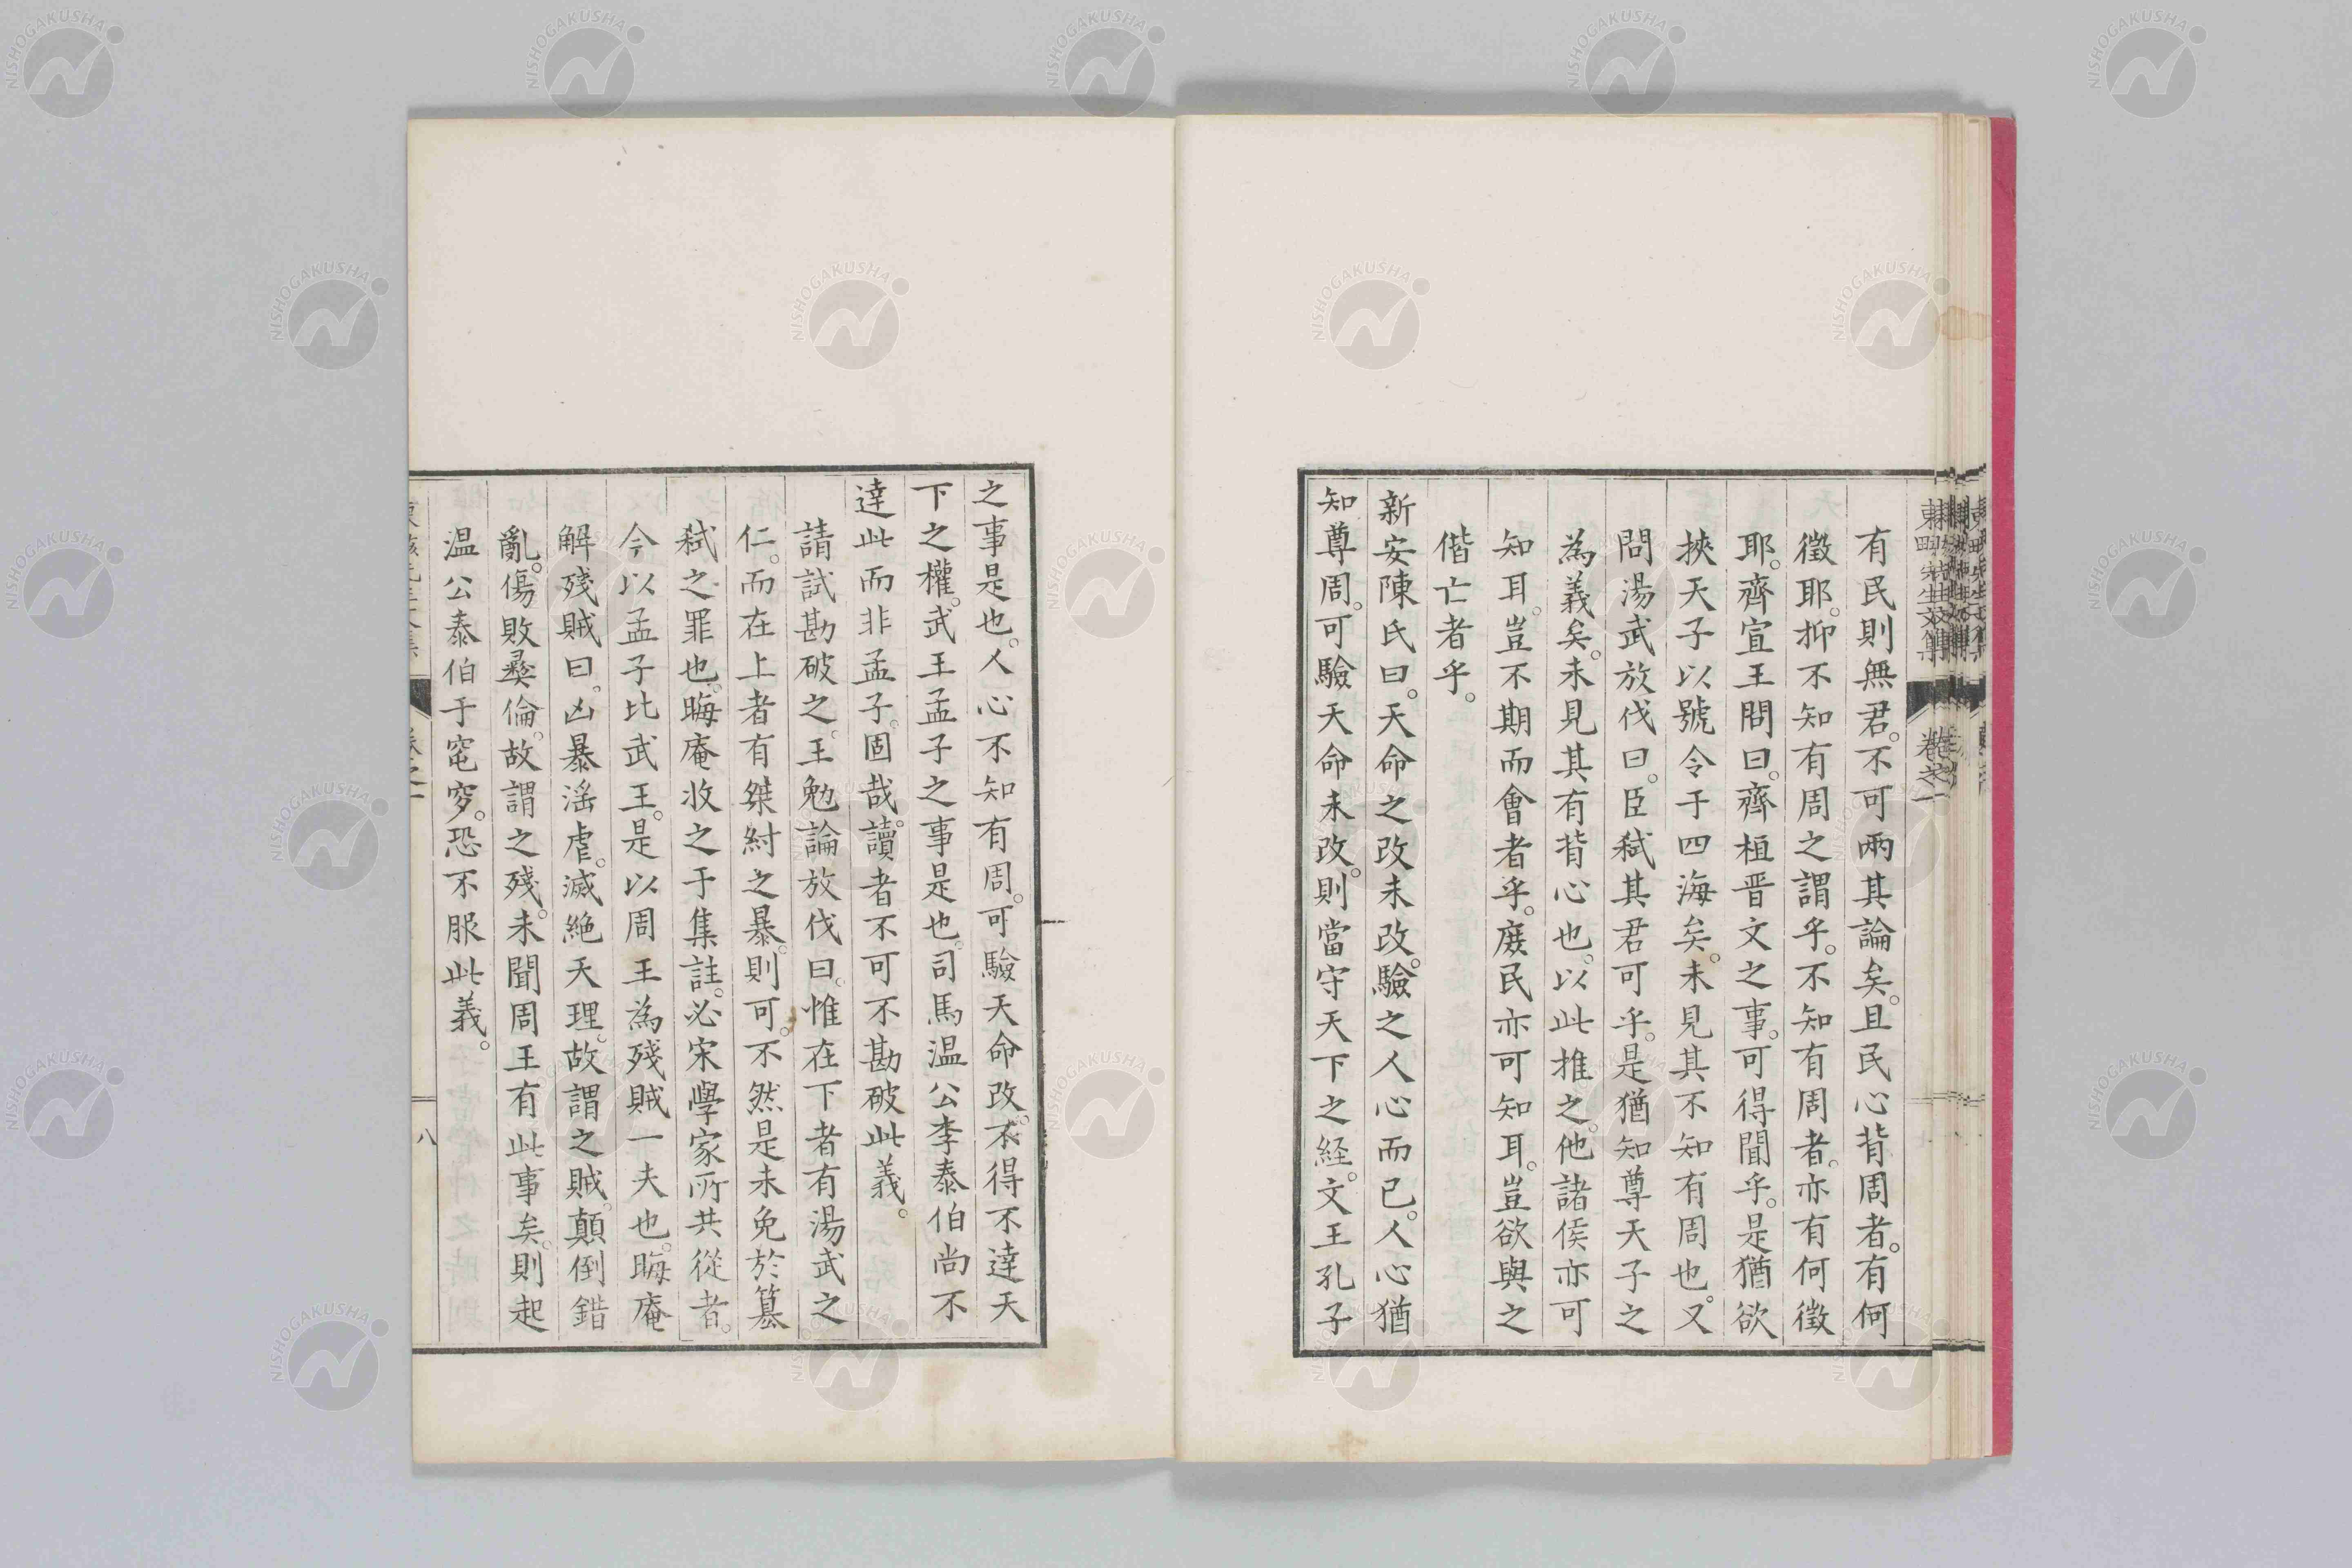 有民則無君。不可兩其論矣。且民心背周者。有何
徵耶。抑不知有周之謂乎。不知有周者。亦有何徵
耶。齊宣王問曰。齊桓晋文之事。可得聞乎。是猶欲
挾天子以號令于四海矣。未見其不知有周也。又
問湯武放伐曰。臣弑其君可乎。是猶知尊天子之
為義矣。未見其有背心也。以此推之。他諸侯亦可
知耳。豈不期而會者乎。庶民亦可知耳。豈欲與之
偕亡者乎。
新安陳氏曰。天命之改未改。驗之人心而已。人心猶
知尊周。可驗天命未改。則當守天下之経。文王孔子
之事是也。人心不知有周。可驗天命改。不得不達天
下之權。武王孟子之事是也。司馬温公李泰伯尚不
達此而非孟子。固哉。讀者不可不勘破此義。
請試勘破之。王勉論放伐曰。惟在下者有湯武之
仁。而在上者有桀紂之暴。則可。不然是未免於篡
弑之罪也。晦庵收之于集註。必宋學家所共從者。
今以孟子比武王。是以周王為殘賊一夫也。晦庵
解殘賊曰。凶暴淫虐。滅絶天理。故謂之賊。顛倒錯
亂。傷敗彝倫。故謂之殘。未聞周王有此事矣。則起
温公泰伯于窀穸。恐不服此義。
卷之一
八
NISHOGAKUSHA